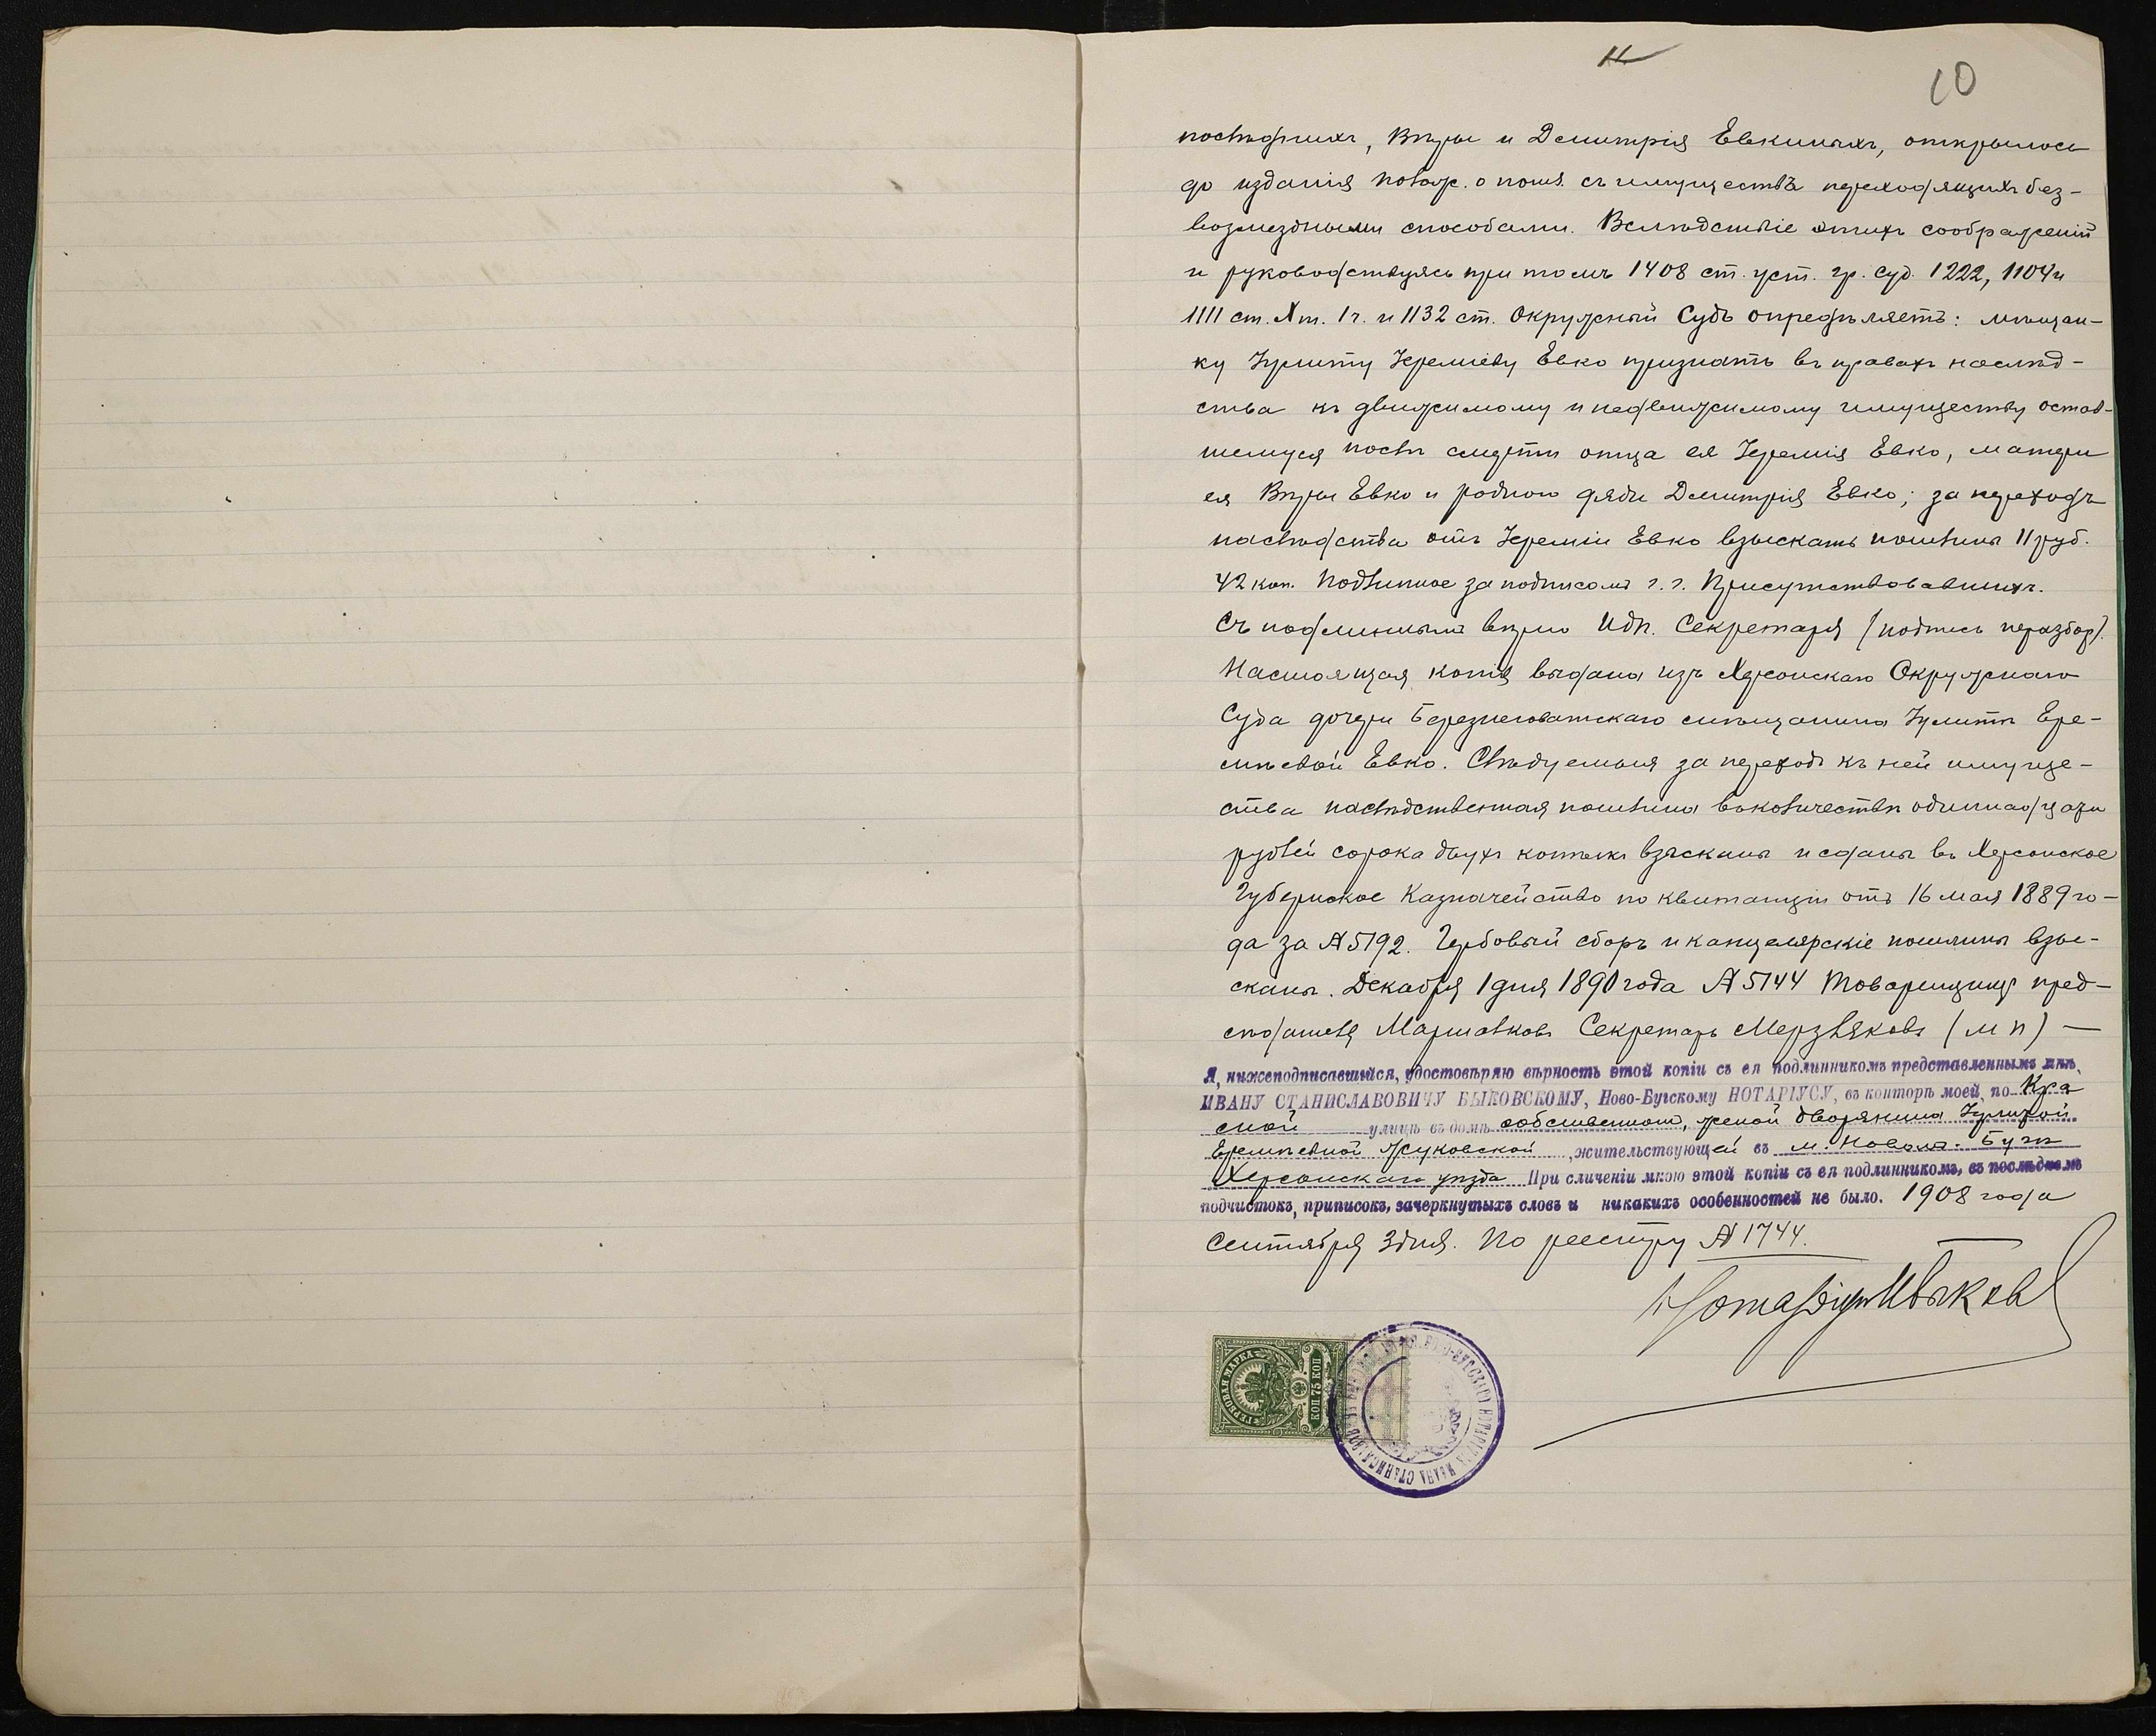 11
10
послѣднихъ, Вѣры и Димитрія Евкиныхъ, открылось
до изданія полож. о пошл. съ имуществъ переходящихъ без-
возмездными способами. Вслѣдствіе этихъ соображеній
и руководствуясь при томъ 1408 ст. уст. гр. суд. 1222, 1104 и
1111 ст. X т. 1 ч. и 1132 ст. Окружный Судъ опредѣляетъ: мѣщан-
ку Іулиту Іереміеву Евко признать въ правахъ наслѣд-
ства къ движимому и недвижимому имуществу остав-
шемуся послѣ смерти отца ея Іеремія Евко, матери
ея Вѣры Евко и родного дяди Димитрія Евко; за переходъ
наслѣдства отъ Іереміи Евко взыскать пошлины 11 руб.
42 коп. Подлинное за подписомъ г.г. Присутствовавшихъ.
Съ подлиннымъ вѣрно Идп. Секретаря (подпись неразбор).
Настоящая копія выдана изъ Херсонскаго Окружнаго
Суда дочери Березнеговатскаго мѣщанина Іулитѣ Ере-
мѣевой Евко. Слѣдуемыя за переходъ къ ней имуще-
ства наслѣдственная пошлина въ количествѣ одиннадцати
рублей сорока двухъ копѣекъ взысканы и сданы въ Херсонское
Губернское Казначейство по квитанціи отъ 16 мая 1889 го-
да за № 5192. Гербовый сборъ и канцелярскіе пошлины взы-
сканы. Декабря 1 дня 1890 года № 5744 Товарищъ пред-
сѣдателя Секретарь Мерзляковъ (м п) —
Я, нижеподписавшійся, удостовѣряю вѣрность этой копіи съ ея подлинникомъ представленнымъ мнѣ,
ИВАНУ СТАНИСЛАВОВИЧУ БЫКОВСКОМУ, Ново-Бугскому НОТАРІУСУ, въ конторѣ моей, по Кра
сной улицѣ въ домѣ собственномъ, женой дворянина Іулитой
Еремѣевной Жуковской, жительствующей въ м. Новомъ-Бугѣ
Херсонскаго уѣзда При сличеніи мною этой копіи съ ея подлинникомъ, въ послѣднемъ
подчистокъ, приписокъ, зачеркнутыхъ словъ и никакихъ особенностей не было. 1908 года
Сентября 3 дня. По реестру № 1744.
Нотаріусъ
ГЕРБОВАЯ МАРКА
КОП 75 КОП
НОВО-БУГСКАГО НОТАРІУСА ИВАНА СТАНИСЛАВОВ